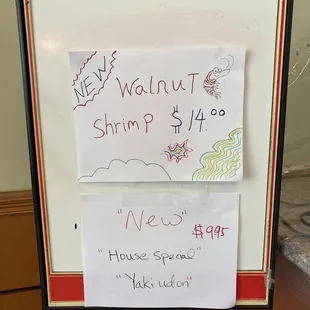 NEW
Walnut
Shrimp $14.00
"New"
$9.95
"House Special"
"Yaki udon"